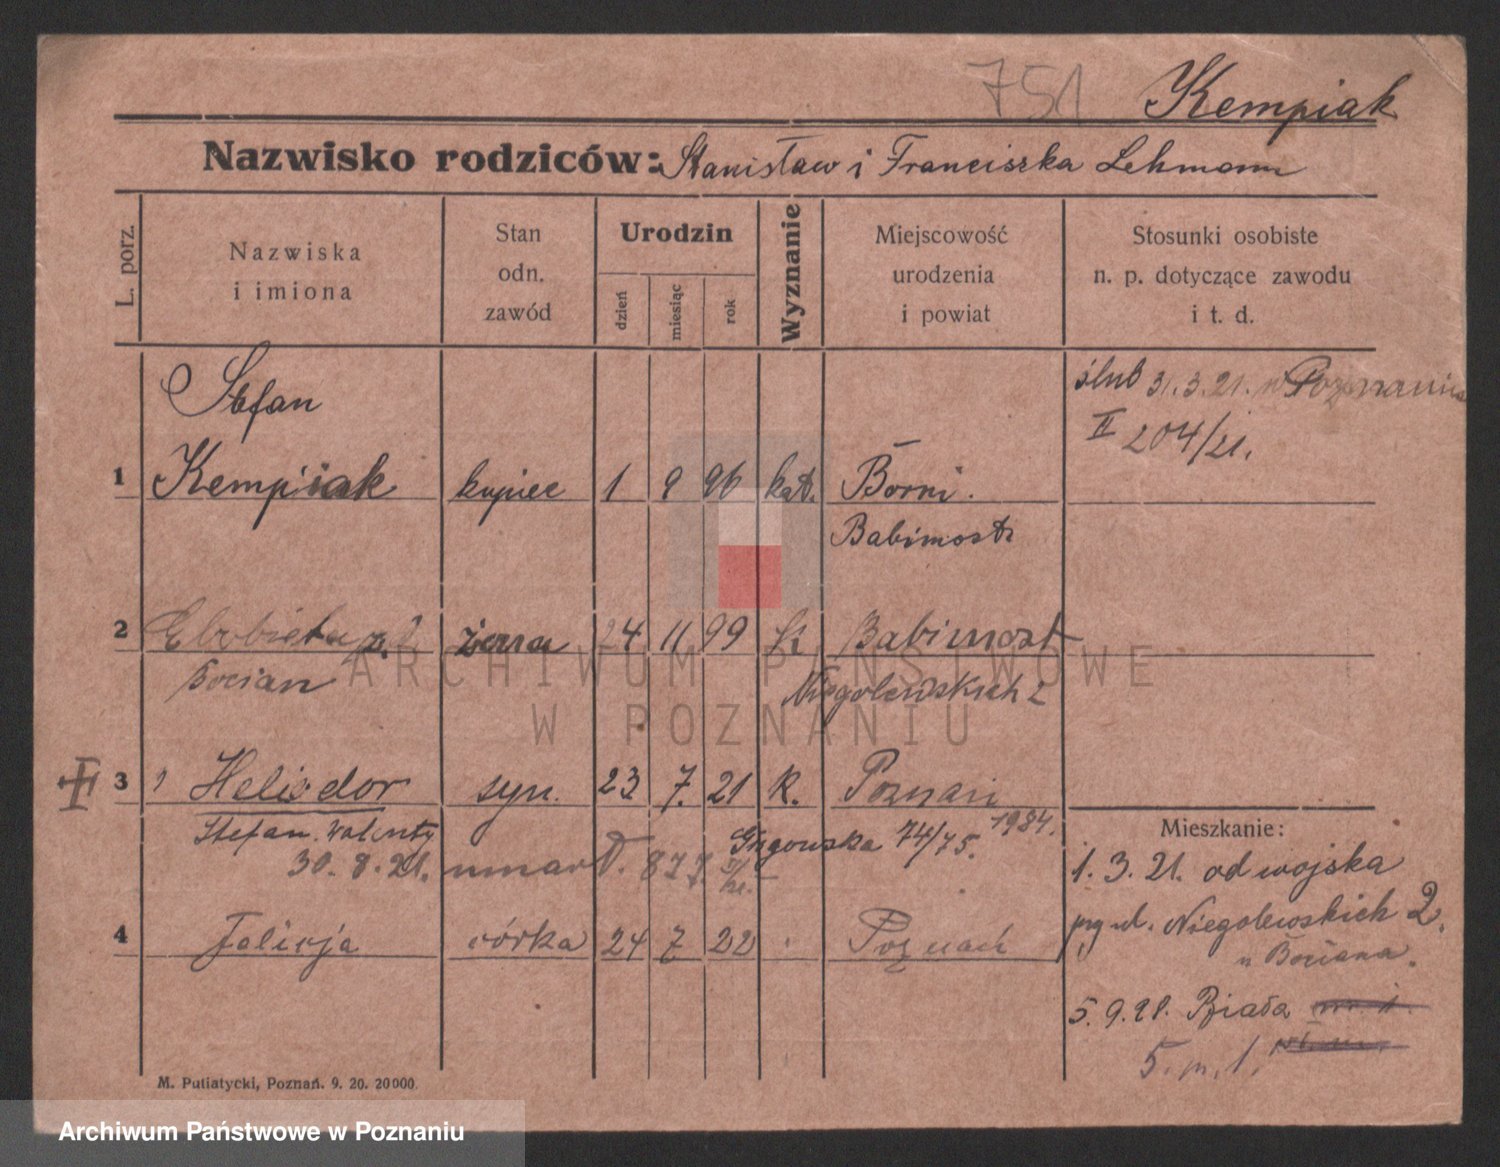 751 Kempiak
Nazwisko rodziców: Stanisław i Franciszka Lehmann
L. porz.
Nazwiska i imiona
Stan odn. zawód
Urodzin
dzień miesiąc rok
Wyznanie
Miejscowość urodzenia i powiat
Stosunki osobiste n. p. dotyczące zawodu i t. d.
ślub 31.3.21. w Poznaniu
II 204/21.
Stefan
1 Kempiak kupiec 1 9 96 kat. Borni.
Babimost
2 Elżbieta z d. żona 24 11 99 k Babimost
Bocian Niegolewskich 2
3 Heliodor syn. 23 7. 21 K. Poznań
Stefan Walenty 74/75. 1984.
30. 8. 21. umarł. 877.
4 Felicja córka 24 7 22 Poznań
Mieszkanie:
1. 3. 21. od wojska
przy ul. Niegolewskich 2.
u Bociana.
5. 9. 28. Biała
5. m. 1.
M. Putiatycki, Poznań. 9. 20. 20000.
ARCHIWUM PAŃSTWOWE
W POZNANIU
Archiwum Państwowe w Poznaniu